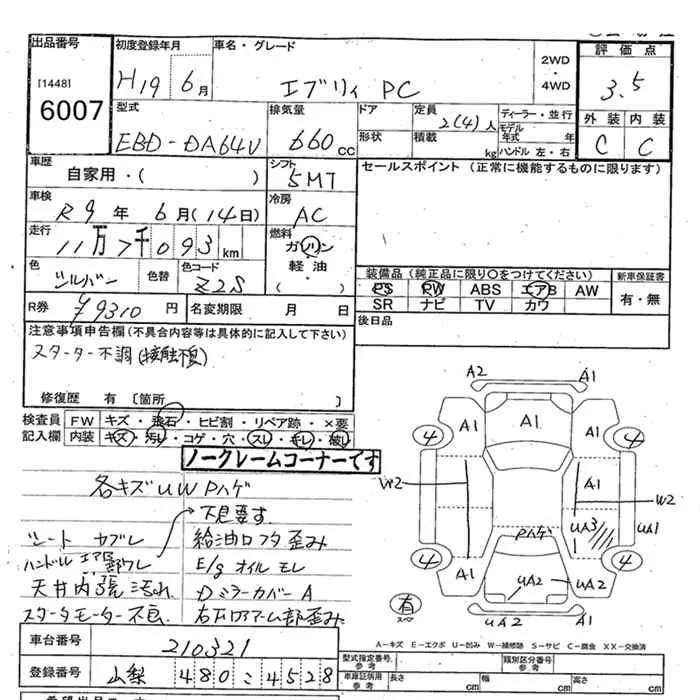 出品番号 初度登録年月 車名・グレード 2WD・4WD 評価点
[1448] H19 6月 エブリィ PC 3.5
6007 型式 排気量 ドア 定員 2(4)人 ディーラー・並行 外装 内装
EBD-DA64V 660cc 形状 積載 kg モデル年式 年 ハンドル 左・右 C C
車歴 自家用・( ) シフト 5MT セールスポイント (正常に機能するものに限ります)
車検 R9年 6月(14日) 冷房 AC
走行 11万7千093km 燃料 ガソリン・軽油・( )
色 シルバー 色替 色コード Z2S 装備品(純正品に限り○をつけてください) 新車保証書
PS PW ABS エアB AW 有・無
R券 ¥9310円 名変期限 月 日 SR ナビ TV カワ
注意事項申告欄(不具合内容等は具体的に記入して下さい) 後日品
スターター不調(接触不良)
修復歴 有 [箇所 ]
検査員 FW キズ・飛石・ヒビ割・リペア跡・×要
記入欄 内装 キズ・汚レ・コゲ・穴・スレ・キレ・破レ
ノークレームコーナーです
各キズUWPハゲ
下見要す
シート ヤブレ 給油口フタ歪み
ハンドル エアB部ワレ E/g オイルモレ
天井内張汚れ DミラーカバーA
スターターモーター不良 右F ロアアーム部歪み
A2 A1
A1 A1 A1
4 4
W2 A1 W2
Pハゲ UA3 UA1
4 4
A1 UA2 UA2
有 スペア UA2 A1
A-キズ E-エクボ U-凹み W-補修跡 S-サビ C-腐食 XX-交換済
車台番号 210321
型式指定番号 参考 類別区分番号 参考
登録番号 山梨 480 ﾆ 4528
車庫証明用 参考 長さ cm 幅 cm 高さ cm